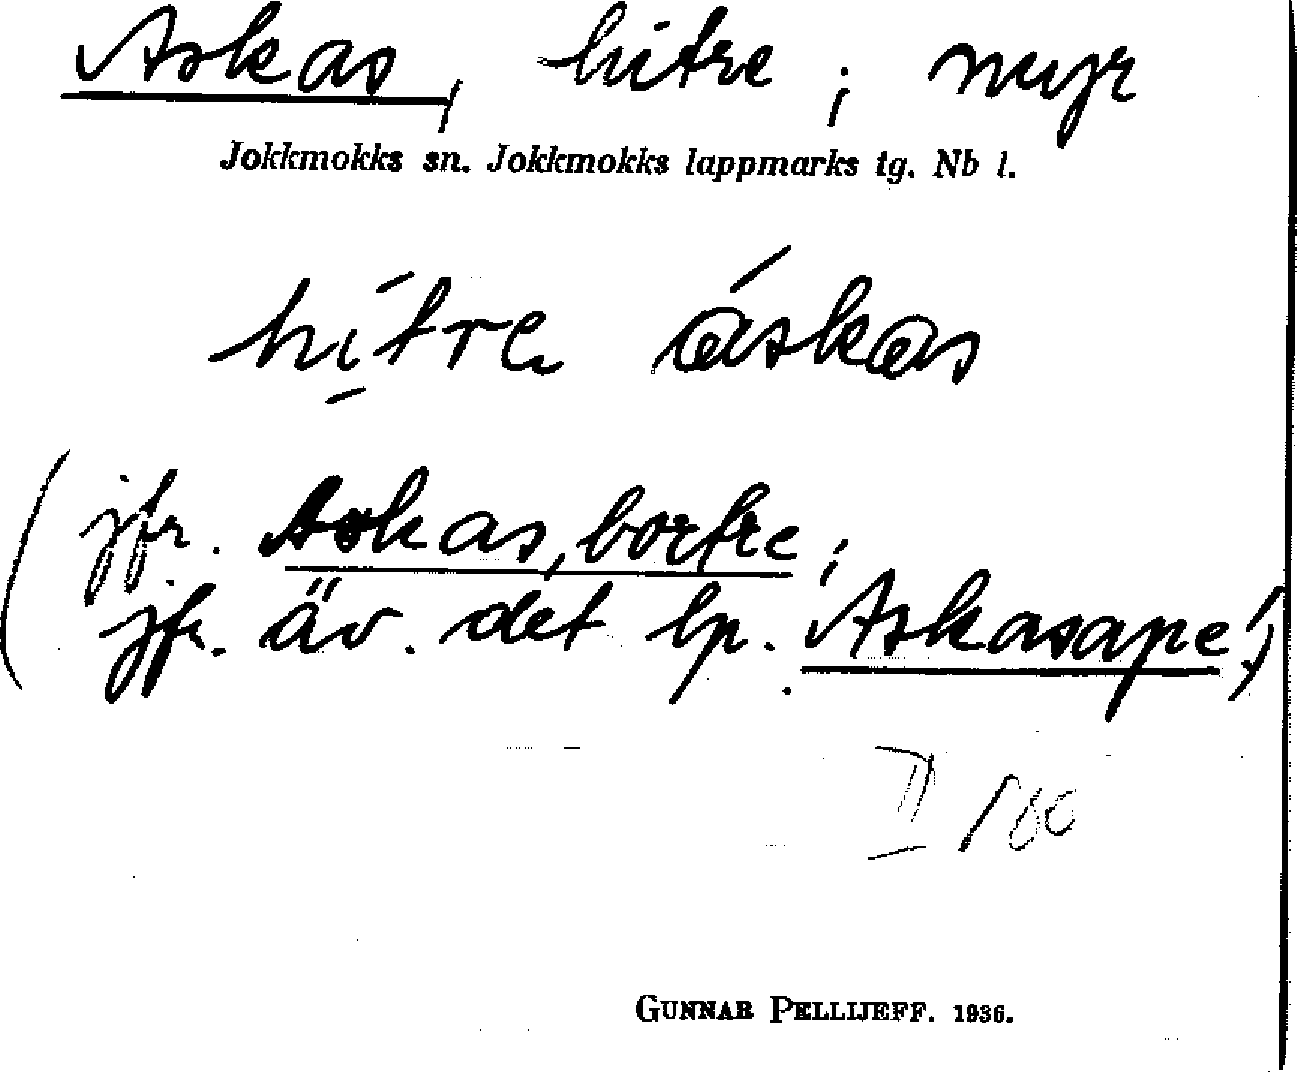 Askas, hitre; myr
Jokkmokks sn. Jokkmokks lappmarks tg. Nb l.
hítre áskas
(jfr. Askas, bortre;
jfr. äv. det lp. Askasape!)
II 100
GUNNAR PELLIJEFF. 1936.